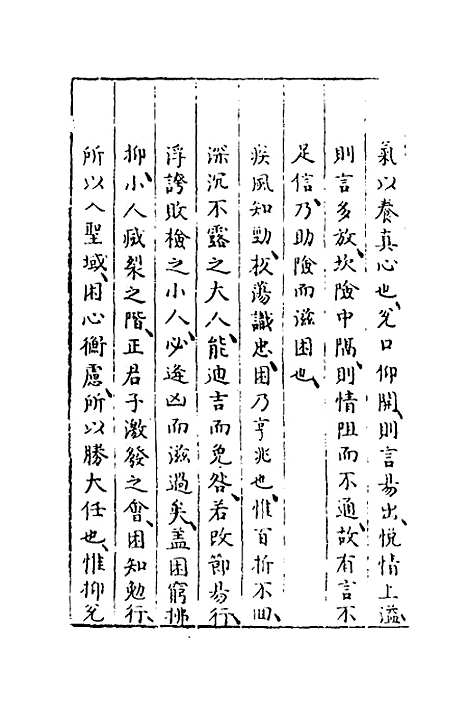 氣以養真心也、兌口仰開、則言易出、悅情上溢、
則言多放、坎險中隔、則情阻而不通、故有言不
足信、乃助險而滋困也、
疾風知勁、板蕩識忠、困乃亨兆也、惟百折不回、
深沉不露之大人、能迪吉而免咎、若改節易行、
浮誇敗檢之小人、必逢凶而滋過矣、蓋困窮拂
抑、小人滅裂之階、正君子激發之會、困知勉行、
所以入聖域、困心衡慮、所以勝大任也、惟抑兌